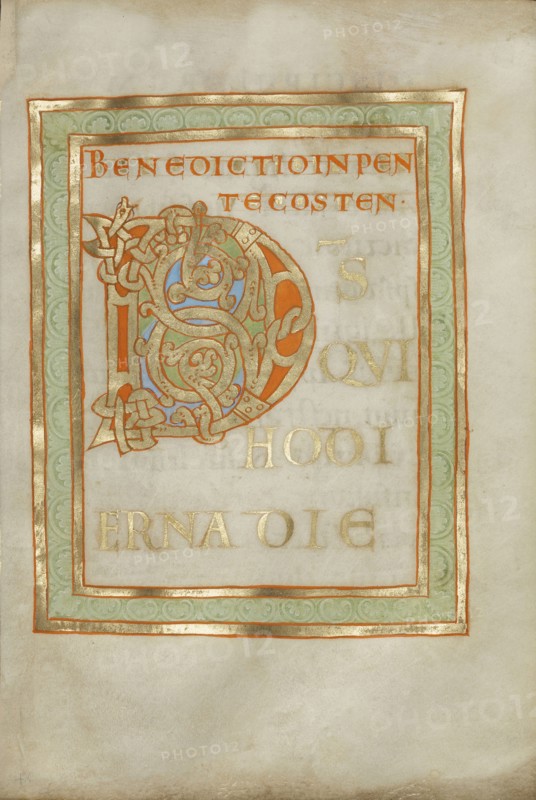 BENEDICTIO IN PEN
TECOSTEN·
D̅S
QUI
HODI
ERNA DIE
PHOTO12